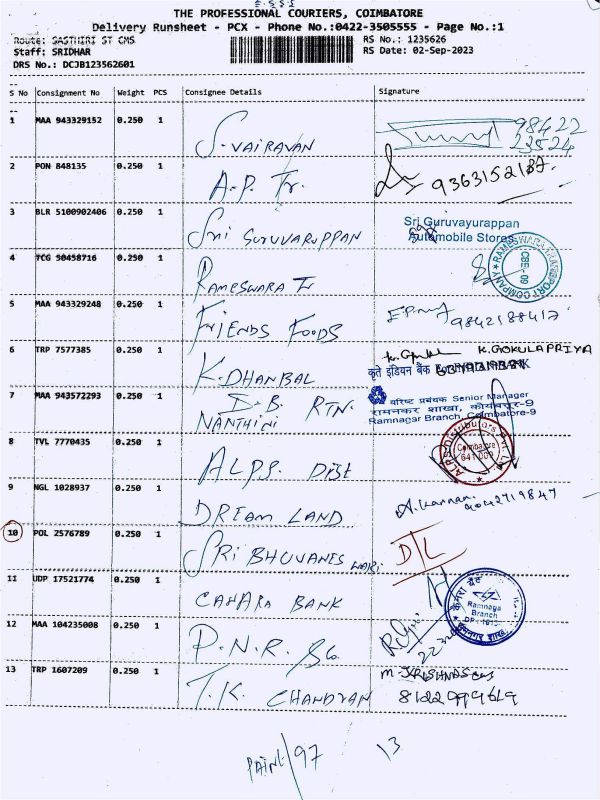 THE PROFESSIONAL COURIERS, COIMBATORE
Delivery Runsheet - PCX - Phone No.:0422-3505555 - Page No.:1
Route: SASTHIRI ST CMS
RS No.: 1235626
Staff: SRIDHAR
RS Date: 02-Sep-2023
DRS No.: DCJB123562601
S No Consignment No Weight PCS Consignee Details Signature
1 MAA 943329152 0.250 1 S.VAIRAVAN 98422
23524
2 PON 848135 0.250 1 A.P. Tr. 9363152187
3 BLR 5100902406 0.250 1 SRI GURUVARUPPAN
Sri Guruvayurappan
Automobile Stores
4 TCG 50458716 0.250 1 RAMESWARA Tr
RAMESWARA TRANSPORT COMPANY
CBE-09
5 MAA 943329248 0.250 1 FRIENDS FOODS 9842188417
6 TRP 7577385 0.250 1 K.DHANBAL K.GOKULAPRIYA
कृते इंडियन बैंक For INDIAN BANK
7 MAA 943572293 0.250 1 I.B. RTN.
NANTHINI
वरिष्ठ प्रबंधक Senior Manager
रामनगर शाखा, कोयंबत्तूर-9
Ramnagar Branch, Coimbatore-9
8 TVL 7770435 0.250 1 ALPS. DIST
Coimbatore
9 NGL 1028937 0.250 1 DREAM LAND A.Kannan 9042719847
10 POL 2576789 0.250 1 SRI BHUVANESWARI D/L
11 UDP 17521774 0.250 1 CANARA BANK
Ramnaga
Branch
12 MAA 104235008 0.250 1 P.N.R. &Co
13 TRP 1607209 0.250 1 T.K. CHANDRAN
8122999619
97 13